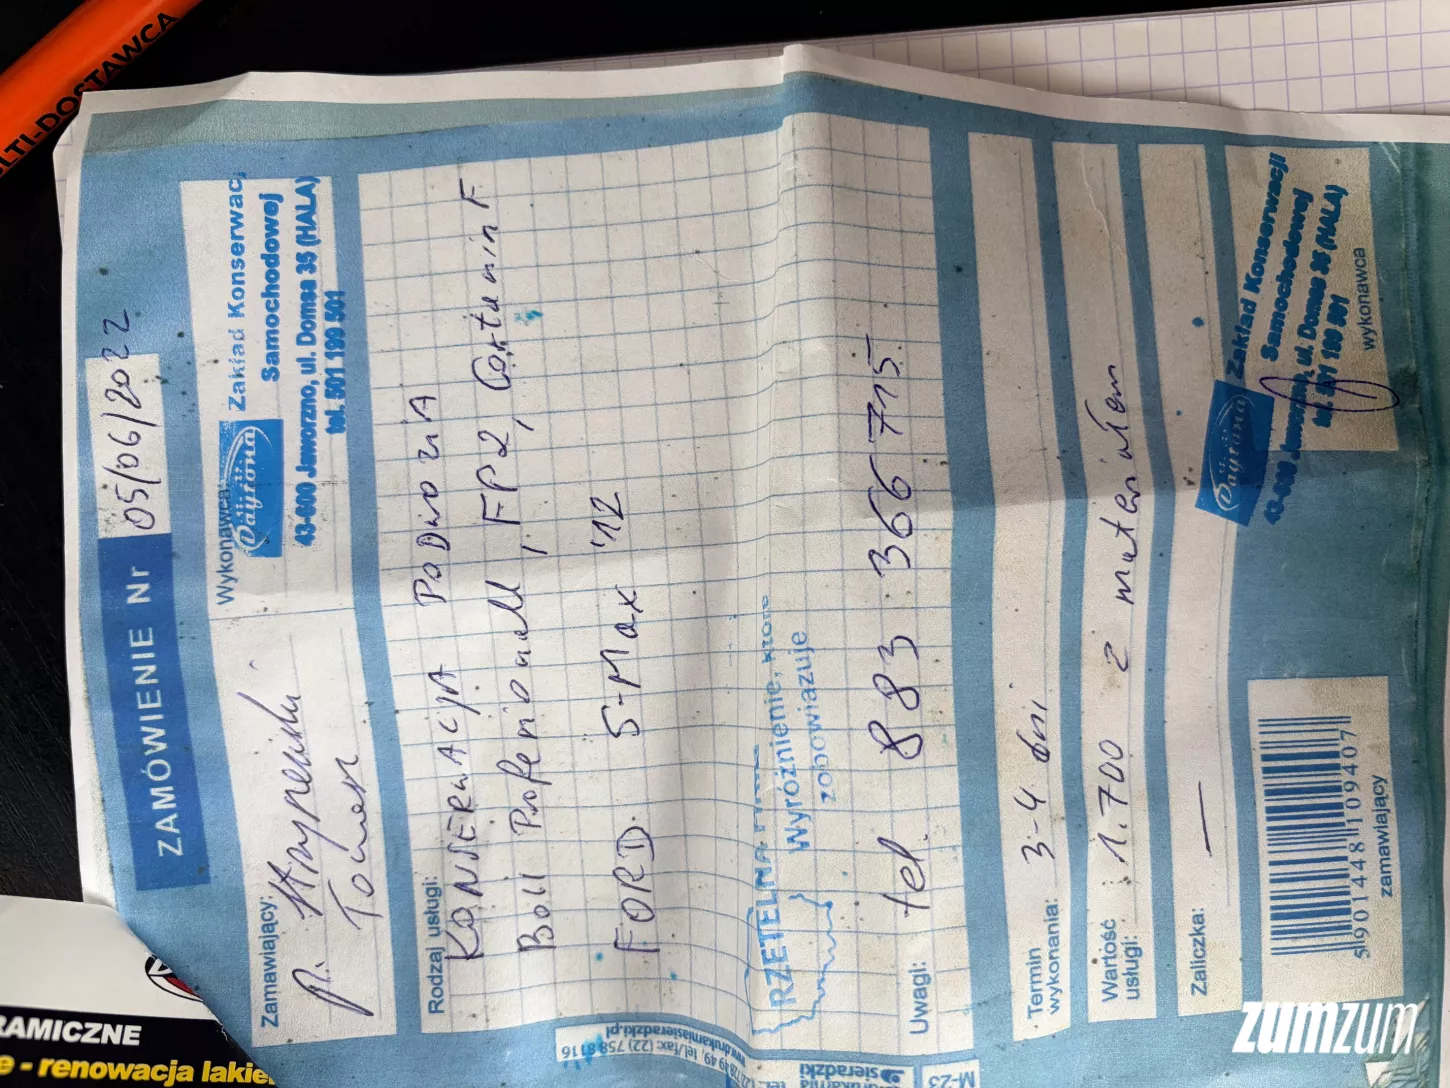 ZAMÓWIENIE Nr 05/06/2022
Zamawiający:
p.
Tomasz
Wykonawca
Dayrona
Zakład Konserwacj
Samochodowej
43-600 Jaworzno, ul. Domsa 35 (HALA)
tel. 501 199 501
Rodzaj usługi:
KONSERWACJA PODWOZIA
Boll Professionall, FP2, Cortanin F
FORD S-Max '12
RZETELNA FIRMA
Wyróżnienie, które
zobowiązuje
Uwagi: tel. 883 366 715
Termin
wykonania: 3-4 dni
Wartość
usługi: 1.700 z materiałem
Zaliczka: —
5901448109407
zamawiający
Dayrona
Zakład Konserwacji
Samochodowej
43-600 Jaworzno, ul. Domsa 35 (HALA)
tel. 501 199 501
wykonawca
M-23
drukarnia
sieradzki
49, tel/fax: (22) 758 8116
www.drukarniasieradzki.pl
LTI-DOSTAWCA
RAMICZNE
e - renowacja lakie
zumzum